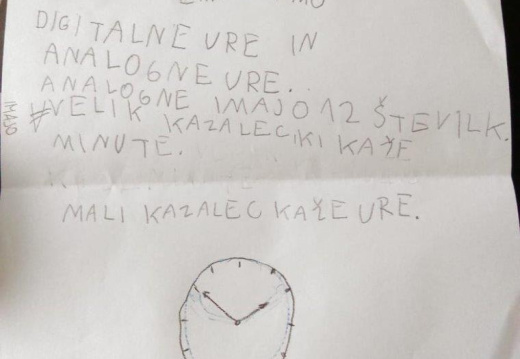 DIGITALNE URE IN
ANALOGNE URE.
ANALOGNE IMAJO 12 ŠTEVILK.
IMAJO
VELIK KAZALEC KI KAŽE
MINUTE.
MALI KAZALEC KAŽE URE.